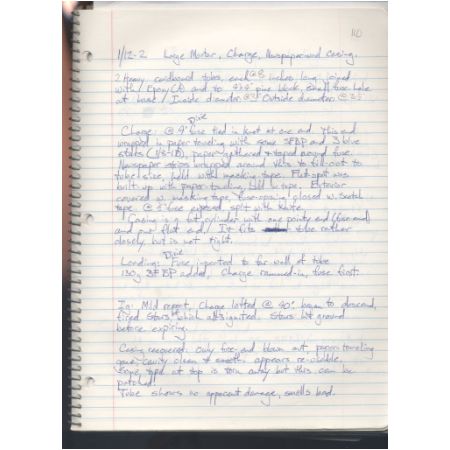 110
1/12-2 Large Mortar, Charge, Newspaperwound Casing.
2 Heavy cardboard tubes, each @ 8 inches long, joined
with Epoxy and to pine block, small fuse hole
at base. Inside diameter @ Outside diameter @
Charge: @ 9" fuse tied in knot at one end. This end
wrapped in paper toweling with some 3FBP and 3 blue
stars, paper gathered & taped around fuse.
Newspaper strips wrapped around this to fill out to
tube size, held with masking tape. Flat spot was
built up with paper toweling, held w. tape. Exterior
covered w. masking tape, fuse-opening closed w. scotch
tape. @ 3" fuse exposed split with knife.
Casing is a fat cylinder with one pointy end (fuse end)
and one flat end. It fits tube rather
closely but is not tight.
Loading: Fuse inserted to far wall of tube
130g 3FBP added, Charge rammed in, fuse first.
Ig: Mild report, Charge lofted @ 40' began to descend,
fired stars, which all ignited. Stars hit ground
before expiring.
Casing recovered. Only fuse end blown out, paper toweling
gone, cavity clean & smooth. appears re-usable.
tape at top is torn away but this can be
patched!
Tube shows no apparent damage, smells bad.